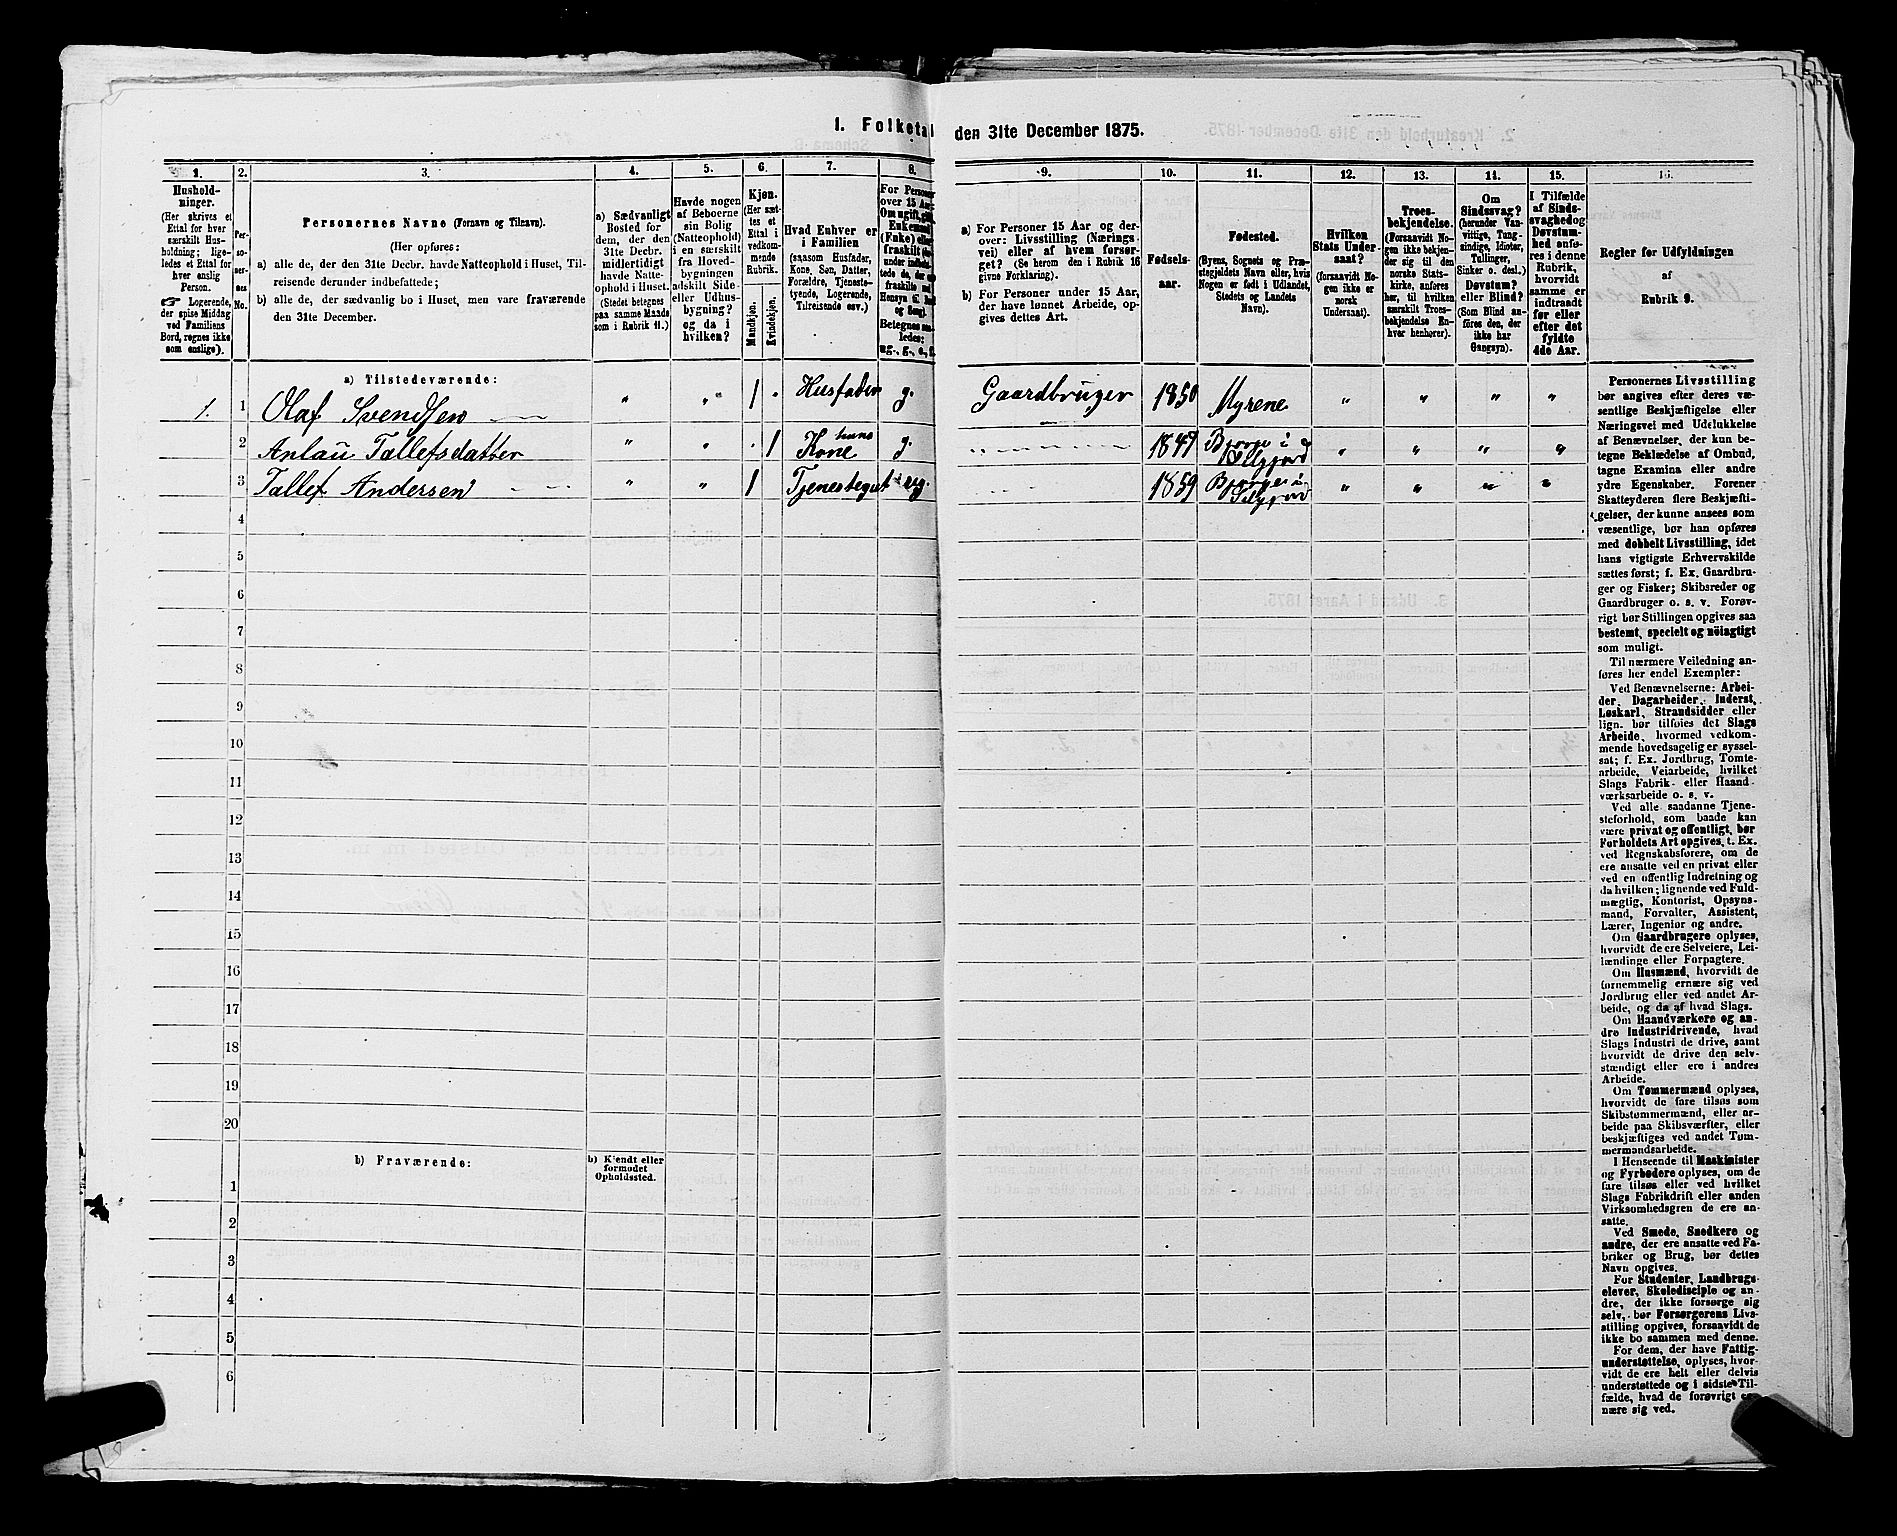 1. Folketal
den 31te December 1875.
1.
2.
3.
4.
5.
6.
7.
8.
9.
10.
11.
12.
13.
14.
15.
16.
Hushold-
ninger.
(Her skrives et
Ettal for hver
særskilt Hus-
holdning; lige-
ledes et Ettal for
hver enslig
Person.
Logerende,
der spise Middag
ved Familiens
Bord, regnes ikke
som enslige).
Per-
so-
ner-
nes
No.
Personernes Navne (Fornavn og Tilnavn).
(Her opføres:
a) alle de, der den 31te Decbr. havde Natteophold i Huset, Til-
reisende derunder indbefattede;
b) alle de, der sædvanlig bo i Huset, men vare fraværende
den 31te December.
a) Sædvanligt
Bosted for
dem, der den
31te Decbr.
midlertidigt
havde Natte-
ophold i Huset.
(Stedet betegnes
paa samme Maade
som i Rubrik 11.)
Havde nogen
af Beboerne
sin Bolig
(Natteophold)
i en særskilt
fra Hoved-
bygningen
adskilt Side-
eller Udhus-
bygning?
og da i
hvilken?
Kjøn.
(Her sæt-
tes et
Ettal i
vedkom-
mende
Rubrik.
Mandkjøn.
Kvindekjøn.
Hvad Enhver er
i Familien
(saasom Husfader,
Kone, Søn, Datter,
Forældre, Tjeneste-
tyende, Logerende,
Tilreisende osv.)
For Personer
over 15 Aar:
Om ugift, gift,
Enkemand
(Enke) eller
fraskilt
Betegnes saa-
ledes:
ug., g., e., f.
a) For Personer 15 Aar og der-
over: Livsstilling (Nærings-
vei) eller af hvem forsør-
get? (Se herom den i Rubrik 16
givne Forklaring).
b) For Personer under 15 Aar,
der have lønnet Arbeide, op-
gives dettes Art.
Fødsels-
aar.
Fødested.
(Byens, Sognets og Præ-
stegjeldets Navn eller, hvis
Nogen er født i Udlandet,
Stedets og Landets
Navn).
Hvilken
Stats Under-
saat?
(forsaavidt No-
gen ikke er
norsk
Undersaat).
Troes-
bekjendelse.
(Forsaavidt No-
gen ikke bekjen-
der sig til den
norske Stats-
kirke, anføres
her, til hvilken
særskilt Troes-
bekjendelse En-
hver henhører).
Om
Sindssvag?
(herunder Van-
vittige, Tung-
sindige, Idioter,
Tullinger,
Sinker o. desl.)
Døvstum?
eller Blind?
(Som Blind an-
føres den, der
ikke har
Gangsyn).
I Tilfælde
af Sinds-
svaghed og
Døvstum-
hed anfø-
res i denne
Rubrik,
hvorvidt
samme er
indtraadt
før eller
efter det
fyldte
4de Aar.
Regler for Udfyldningen
af
Rubrik 9.
a) Tilstedeværende:
1. 1 Olaf Svendsen " " 1 . Husfader g. Gaardbruger 1850 Myrene " " " "
2 Anlau Tallefsdatter " " . 1 hans Kone g. 1847 Bjorge i Silgjord " " " "
3 Tallef Andersen " " 1 Tjenestegut ug. 1859 i Silgjord " " " "
4
5
6
7
8
9
10
11
12
13
14
15
16
17
18
19
20
b) Fraværende:
b) Kjendt eller
formodet
Opholdssted.
1
2
3
4
5
6
Personernes Livsstilling
bør angives efter deres væ-
sentlige Beskjæftigelse eller
Næringsvei med Udelukkelse
af Benævnelser, der kun be-
tegne Beklædelse af Ombud,
tagne Examina eller andre
ydre Egenskaber. Forener
Skatteyderen flere Beskjæfti-
gelser, der kunne ansees som
væsentlige, bør han opføres
med dobbelt Livsstilling, idet
hans vigtigste Erhvervskilde
sættes først; f. Ex. Gaardbru-
ger og Fisker; Skibsreder og
Gaardbruger o. s. v. Forøv-
rigt bør Stillingen opgives saa
bestemt, specielt og nöiagtigt
som muligt.
Til nærmere Veiledning an-
føres her endel Exempler:
Ved Benævnelserne: Arbei-
der, Dagarbeider, Inderst,
Løskarl, Strandsidder eller
lign. bør tilføies det Slags
Arbeide, hvormed vedkom-
mende hovedsagelig er syssel-
sat; f. Ex. Jordbrug, Tomte-
arbeide, Veiarbeide, hvilket
Slags Fabrik- eller Haand-
værksarbeide o. s. v.
Ved alle saadanne Tjene-
steforhold, som baade kan
være privat og offentligt, bør
Forholdets Art opgives, f. Ex.
ved Regnskabsførere, om de
ere ansatte ved en privat eller
ved en offentlig Indretning og
da hvilken; lignende ved Fuld-
mægtig, Kontorist, Opsyns-
mand, Forvalter, Assistent,
Lærer, Ingeniør og andre.
Om Gaardbrugere oplyses,
hvorvidt de ere Selveiere, Lei-
lændinge eller Forpagtere.
Om Husmænd, hvorvidt de
fornemmelig ernære sig ved
Jordbrug eller ved andet Ar-
beide, og da af hvad Slags.
Om Haandværkere og an-
dre Industridrivende, hvad
Slags Industri de drive, samt
hvorvidt de drive den selv-
stændigt eller ere i andres
Arbeide.
Om Tømmermænd oplyses,
hvorvidt de fare tilsøs som
Skibstømmermænd, eller ar-
beide paa Skibsværfter, eller
beskjæftiges ved andet Tøm-
mermandsarbeide.
I Henseende til Maskinister
og Fyrbødere oplyses, om de
fare tilsøs eller ved hvilket
Slags Fabrikdrift eller anden
Virksomhedsgren de ere an-
satte.
Ved Smede, Snedkere og
andre, der ere ansatte ved Fa-
briker og Brug, bør dettes
Navn opgives.
For Studenter, Landbrugs-
elever, Skoledisciple og an-
dre, der ikke forsørge sig
selv, bør Forsørgerens Livs-
stilling opgives, forsaavidt de
ikke bo sammen med denne.
For dem, der have Fattig-
understøttelse, oplyses, hvor-
vidt de ere helt eller delvis
understøttede og i sidste Til-
fælde, hvad de forøvrigt er-
nære sig ved.